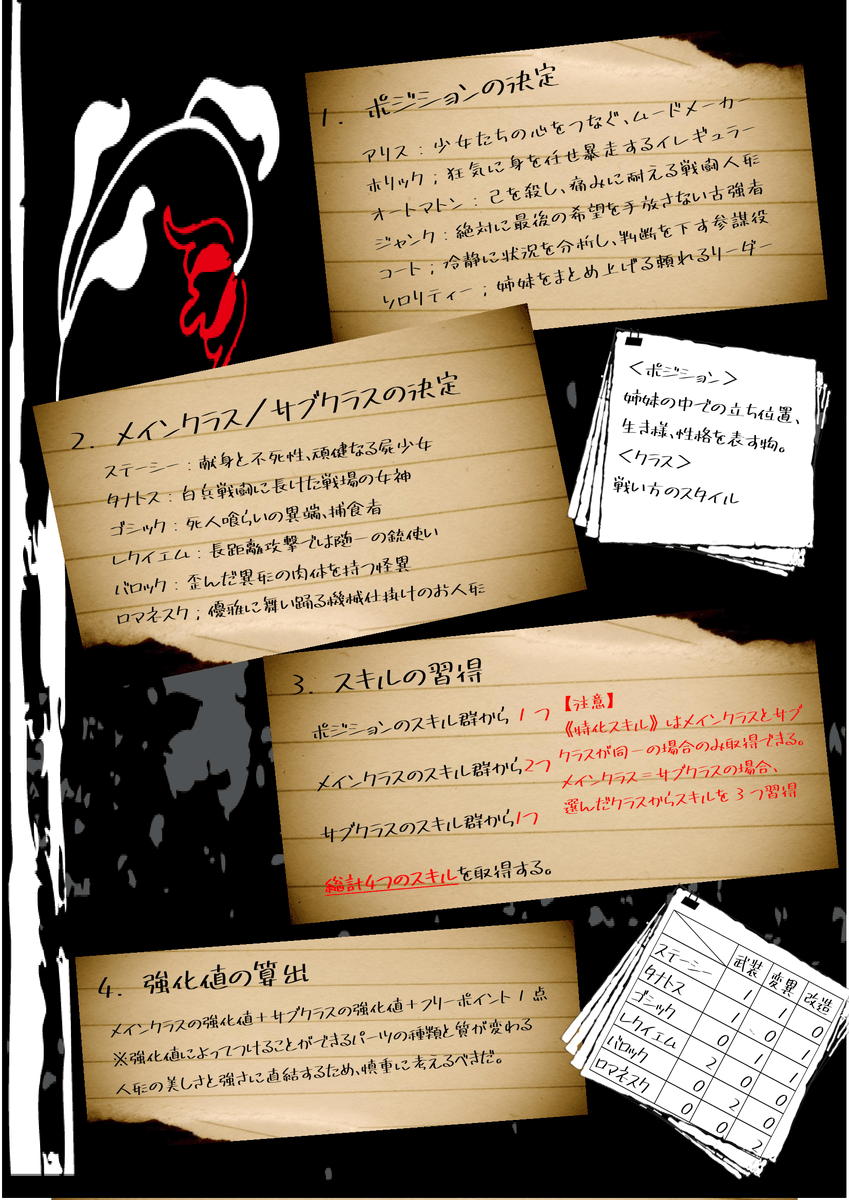 1. ポジションの決定
アリス：少女たちの心をつなぐ、ムードメーカー
ホリック；狂気に身を任せ暴走するイレギュラー
オートマトン：己を殺し、痛みに耐える戦闘人形
ジャンク：絶対に最後の希望を手放さない古強者
コート；冷静に状況を分析し、判断を下す参謀役
ソロリティー；姉妹をまとめ上げる頼れるリーダー
2. メインクラス/サブクラスの決定
ステーシー：献身と不死性、頑健なる屍少女
タナトス：白兵戦闘に長けた戦場の女神
ゴシック：死人喰らいの異端、捕食者
レクイエム：長距離攻撃では随一の銃使い
バロック：歪んだ異形の肉体を持つ怪異
ロマネスク；優雅に舞い踊る機械仕掛けのお人形
＜ポジション＞
姉妹の中での立ち位置、
生き様、性格を表す物。
＜クラス＞
戦い方のスタイル
3. スキルの習得
ポジションのスキル群から1つ
メインクラスのスキル群から2つ
サブクラスのスキル群から1つ
総計4つのスキルを取得する。
【注意】
《特化スキル》はメインクラスとサブ
クラスが同一の場合のみ取得できる。
メインクラス＝サブクラスの場合、
選んだクラスからスキルを3つ習得
4. 強化値の算出
メインクラスの強化値＋サブクラスの強化値＋フリーポイント1点
※強化値によってつけることができるパーツの種類と質が変わる
人形の美しさと強さに直結するため、慎重に考えるべきだ。
武装 変異 改造
ステーシー 1 1 0
タナトス 1 0 1
ゴシック 0 1 1
レクイエム 2 0 0
バロック 0 2 0
ロマネスク 0 0 2